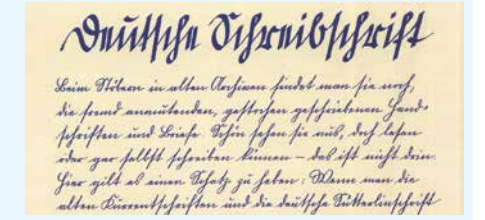 Deutsche Schreibschrift
Beim Stöbern in alten Archiven findet man sie noch,
die fremd anmutenden, gestochen geschriebenen Hand-
schriften und Briefe. Schön sehen sie aus, doch lesen
oder gar selbst schreiben können – das ist nicht drin.
Hier gilt es einen Schatz zu heben: Wenn man die
alten Kurrentschriften und die deutsche Sütterlinschrift